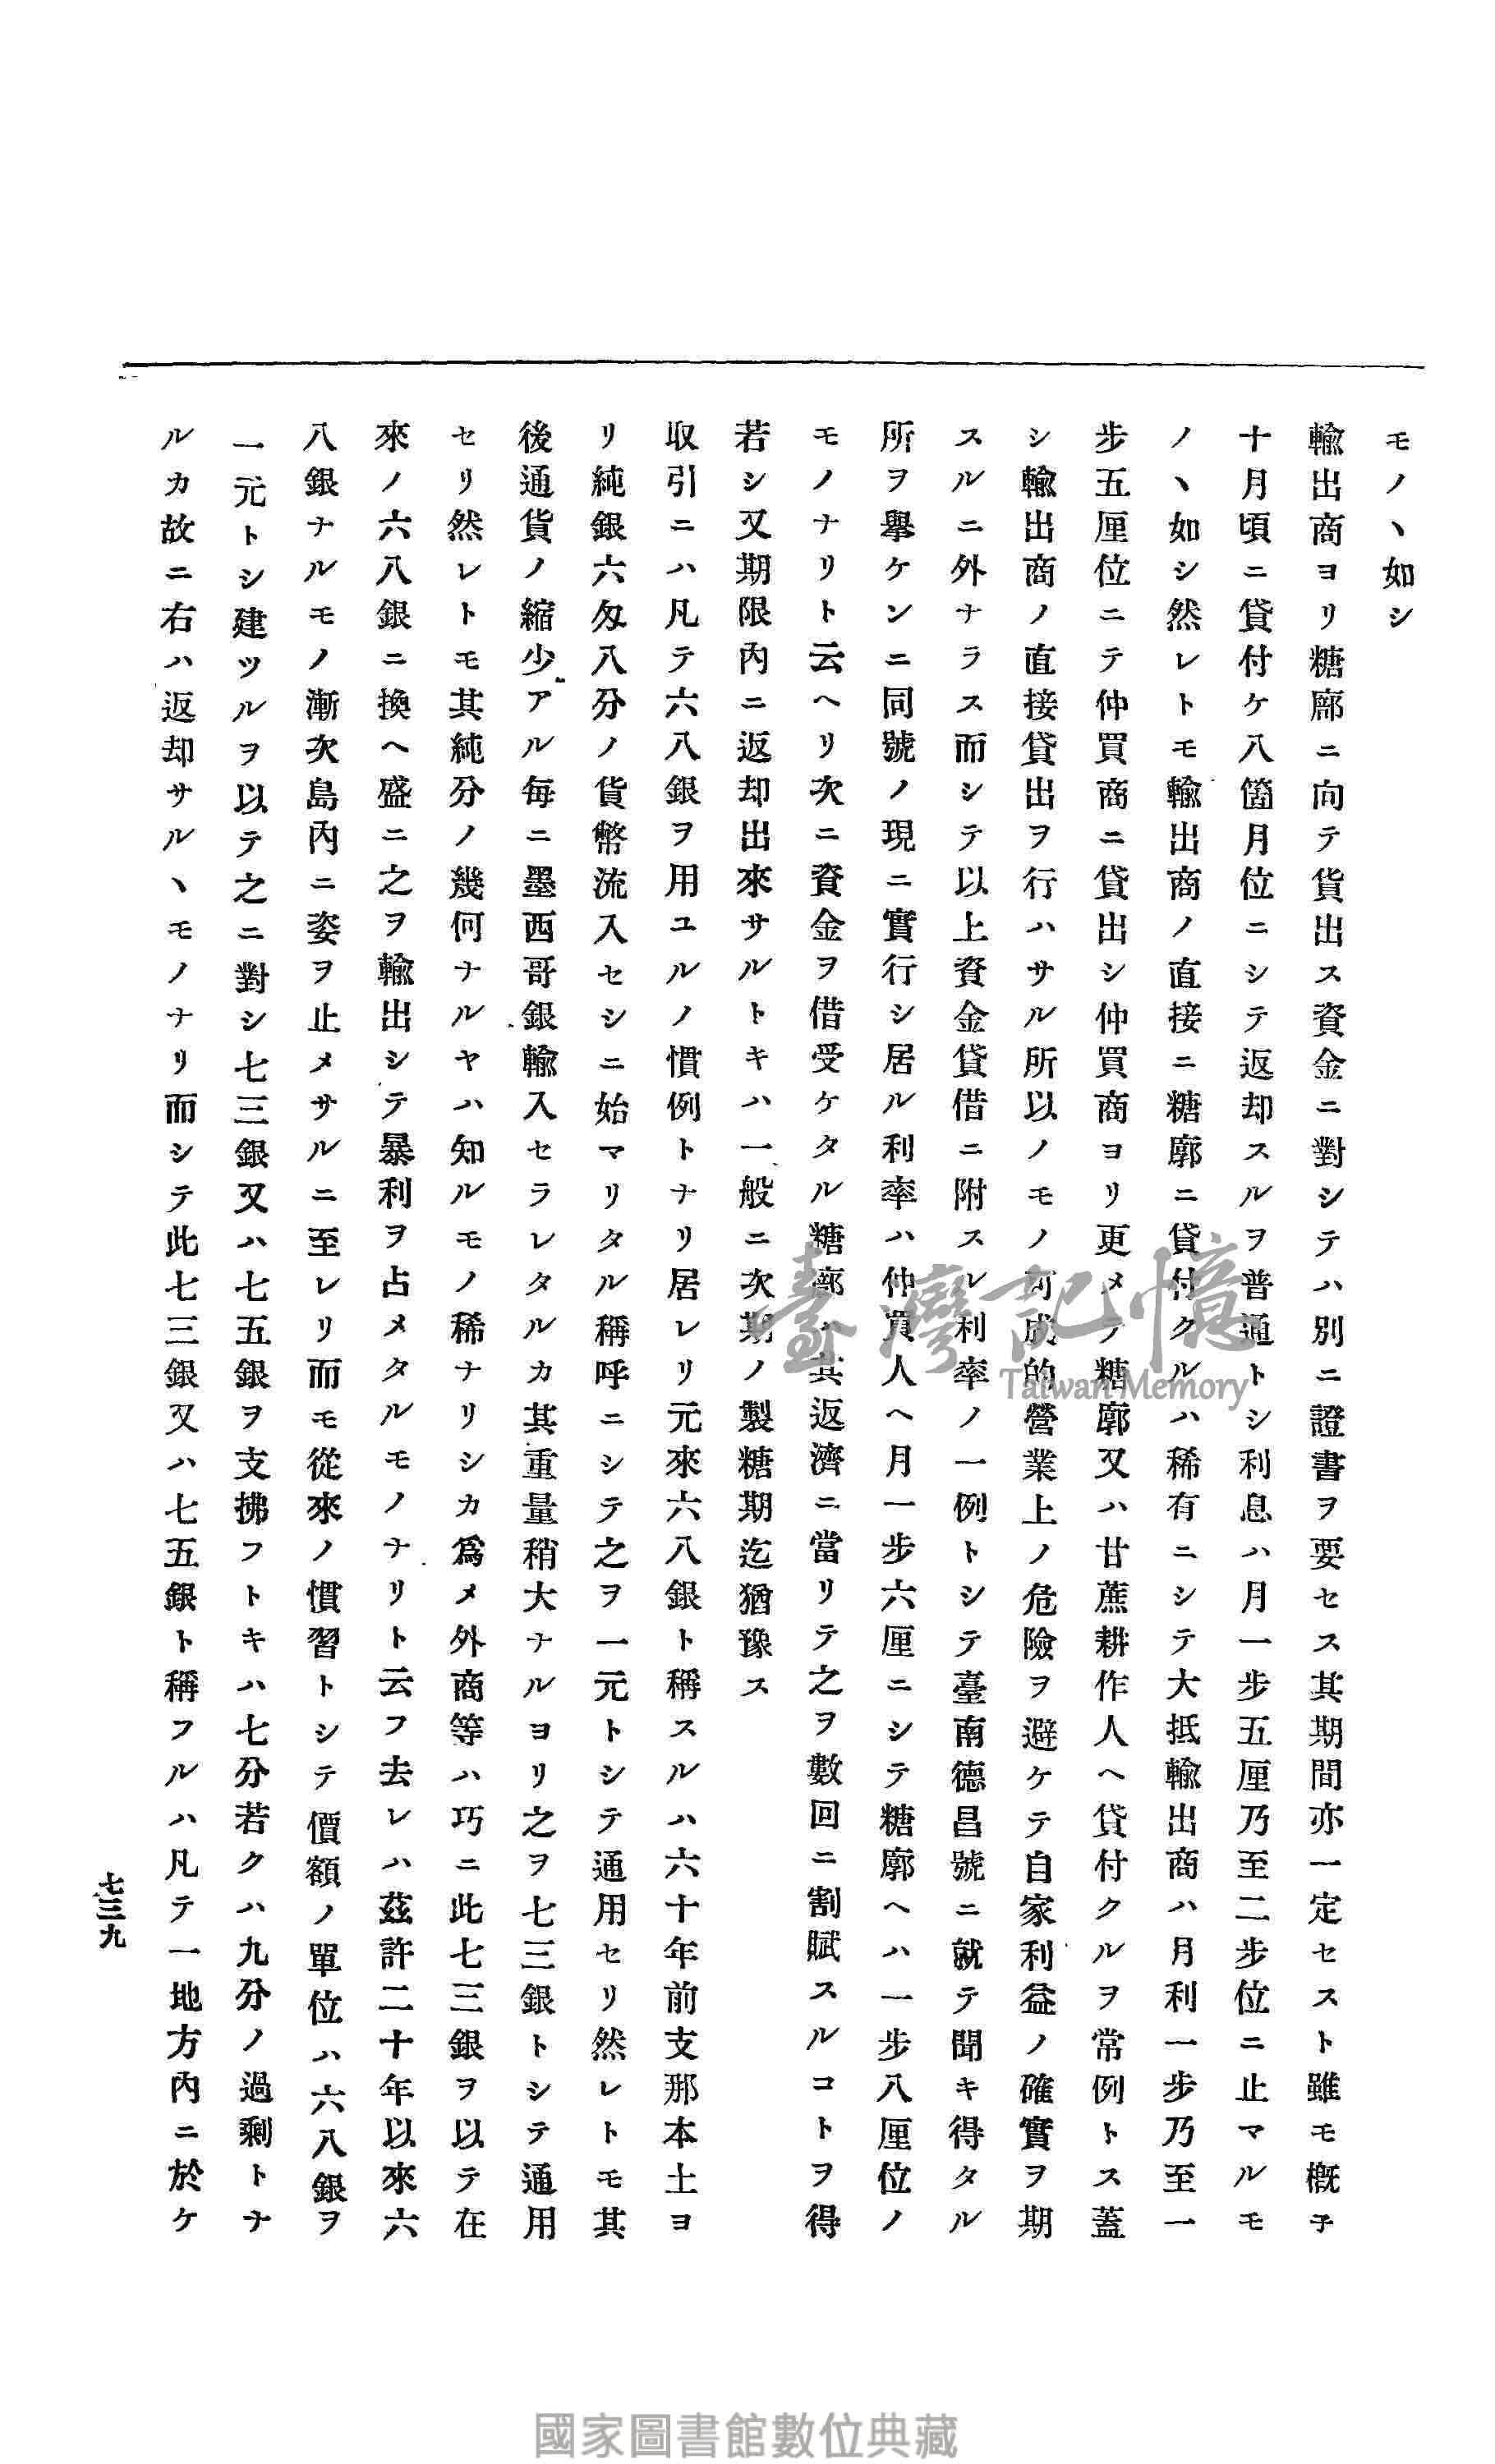 モノヽ如シ
輸出商ヨリ糖廍ニ向テ貨出ス資金ニ對シテハ別ニ證書ヲ要セス其期間亦一定セスト雖モ概子
十月頃ニ貸付ケ八箇月位ニシテ返却スルヲ普通トシ利息ハ月一步五厘乃至二步位ニ止マルモ
ノヽ如シ然レトモ輸出商ノ直接ニ糖廓ニ貸付クルハ稀有ニシテ大抵輸出商ハ月利一步乃至一
步五厘位ニテ仲買商ニ貸出シ仲買商ヨリ更メテ糖廓又ハ甘蔗耕作人ヘ貸付クルヲ常例トス蓋
シ輸出商ノ直接貸出ヲ行ハサル所以ノモノ可成的營業上ノ危險ヲ避ケテ自家利益ノ確實ヲ期
スルニ外ナラス而シテ以上資金貸借ニ附スル利率ノ一例トシテ臺南德昌號ニ就テ聞キ得タル
所ヲ擧ケンニ同號ノ現ニ實行シ居ル利率ハ仲買人ヘ月一步六厘ニシテ糖廓ヘハ一步八厘位ノ
モノナリト云ヘリ次ニ資金ヲ借受ケタル糖廓ハ其返濟ニ當リテ之ヲ數回ニ割賦スルコトヲ得
若シ又期限內ニ返却出來サルトキハ一般ニ次期ノ製糖期迄猶豫ス
取引ニハ凡テ六八銀ヲ用ユルノ慣例トナリ居レリ元來六八銀ト稱スルハ六十年前支那本土ヨ
リ純銀六匁八分ノ貨幣流入セシニ始マリタル稱呼ニシテ之ヲ一元トシテ通用セリ然レトモ其
後通貨ノ縮少アル每ニ墨西哥銀輸入セラレタルカ其重量稍大ナルヨリ之ヲ七三銀トシテ通用
セリ然レトモ其純分ノ幾何ナルヤハ知ルモノ稀ナリシカ爲メ外商等ハ巧ニ此七三銀ヲ以テ在
來ノ六八銀ニ換ヘ盛ニ之ヲ輸出シテ暴利ヲ占メタルモノナリト云フ去レハ茲許二十年以來六
八銀ナルモノ漸次島內ニ姿ヲ止メサルニ至レリ而モ從來ノ慣習トシテ價額ノ單位ハ六八銀ヲ
一元トシ建ツルヲ以テ之ニ對シ七三銀又ハ七五銀ヲ支拂フトキハ七分若クハ九分ノ過剩トナ
ルカ故ニ右ハ返却サルヽモノナリ而シテ此七三銀又ハ七五銀ト稱フルハ凡テ一地方內ニ於ケ
七三九
臺灣記憶
Taiwan Memory
國家圖書館數位典藏